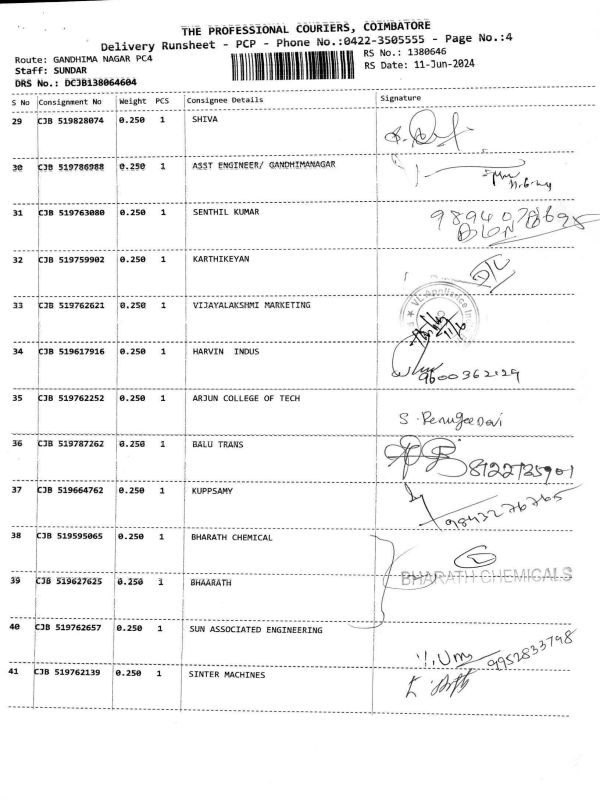 THE PROFESSIONAL COURIERS, COIMBATORE
Delivery Runsheet - PCP - Phone No.:0422-3505555 - Page No.:4
Route: GANDHIMA NAGAR PC4 RS No.: 1380646
Staff: SUNDAR RS Date: 11-Jun-2024
DRS No.: DCJB138064604
S No Consignment No Weight PCS Consignee Details Signature
29 CJB 519828074 0.250 1 SHIVA
30 CJB 519786988 0.250 1 ASST ENGINEER/ GANDHIMANAGAR
31 CJB 519763080 0.250 1 SENTHIL KUMAR
32 CJB 519759902 0.250 1 KARTHIKEYAN
33 CJB 519762621 0.250 1 VIJAYALAKSHMI MARKETING
34 CJB 519617916 0.250 1 HARVIN INDUS 9600362129
35 CJB 519762252 0.250 1 ARJUN COLLEGE OF TECH
S. Renugadevi
36 CJB 519787262 0.250 1 BALU TRANS 8122735901
37 CJB 519664762 0.250 1 KUPPSAMY
9843276765
38 CJB 519595065 0.250 1 BHARATH CHEMICAL
39 CJB 519627625 0.250 1 BHAARATH BHARATH CHEMICALS
40 CJB 519762657 0.250 1 SUN ASSOCIATED ENGINEERING
9952833798
41 CJB 519762139 0.250 1 SINTER MACHINES